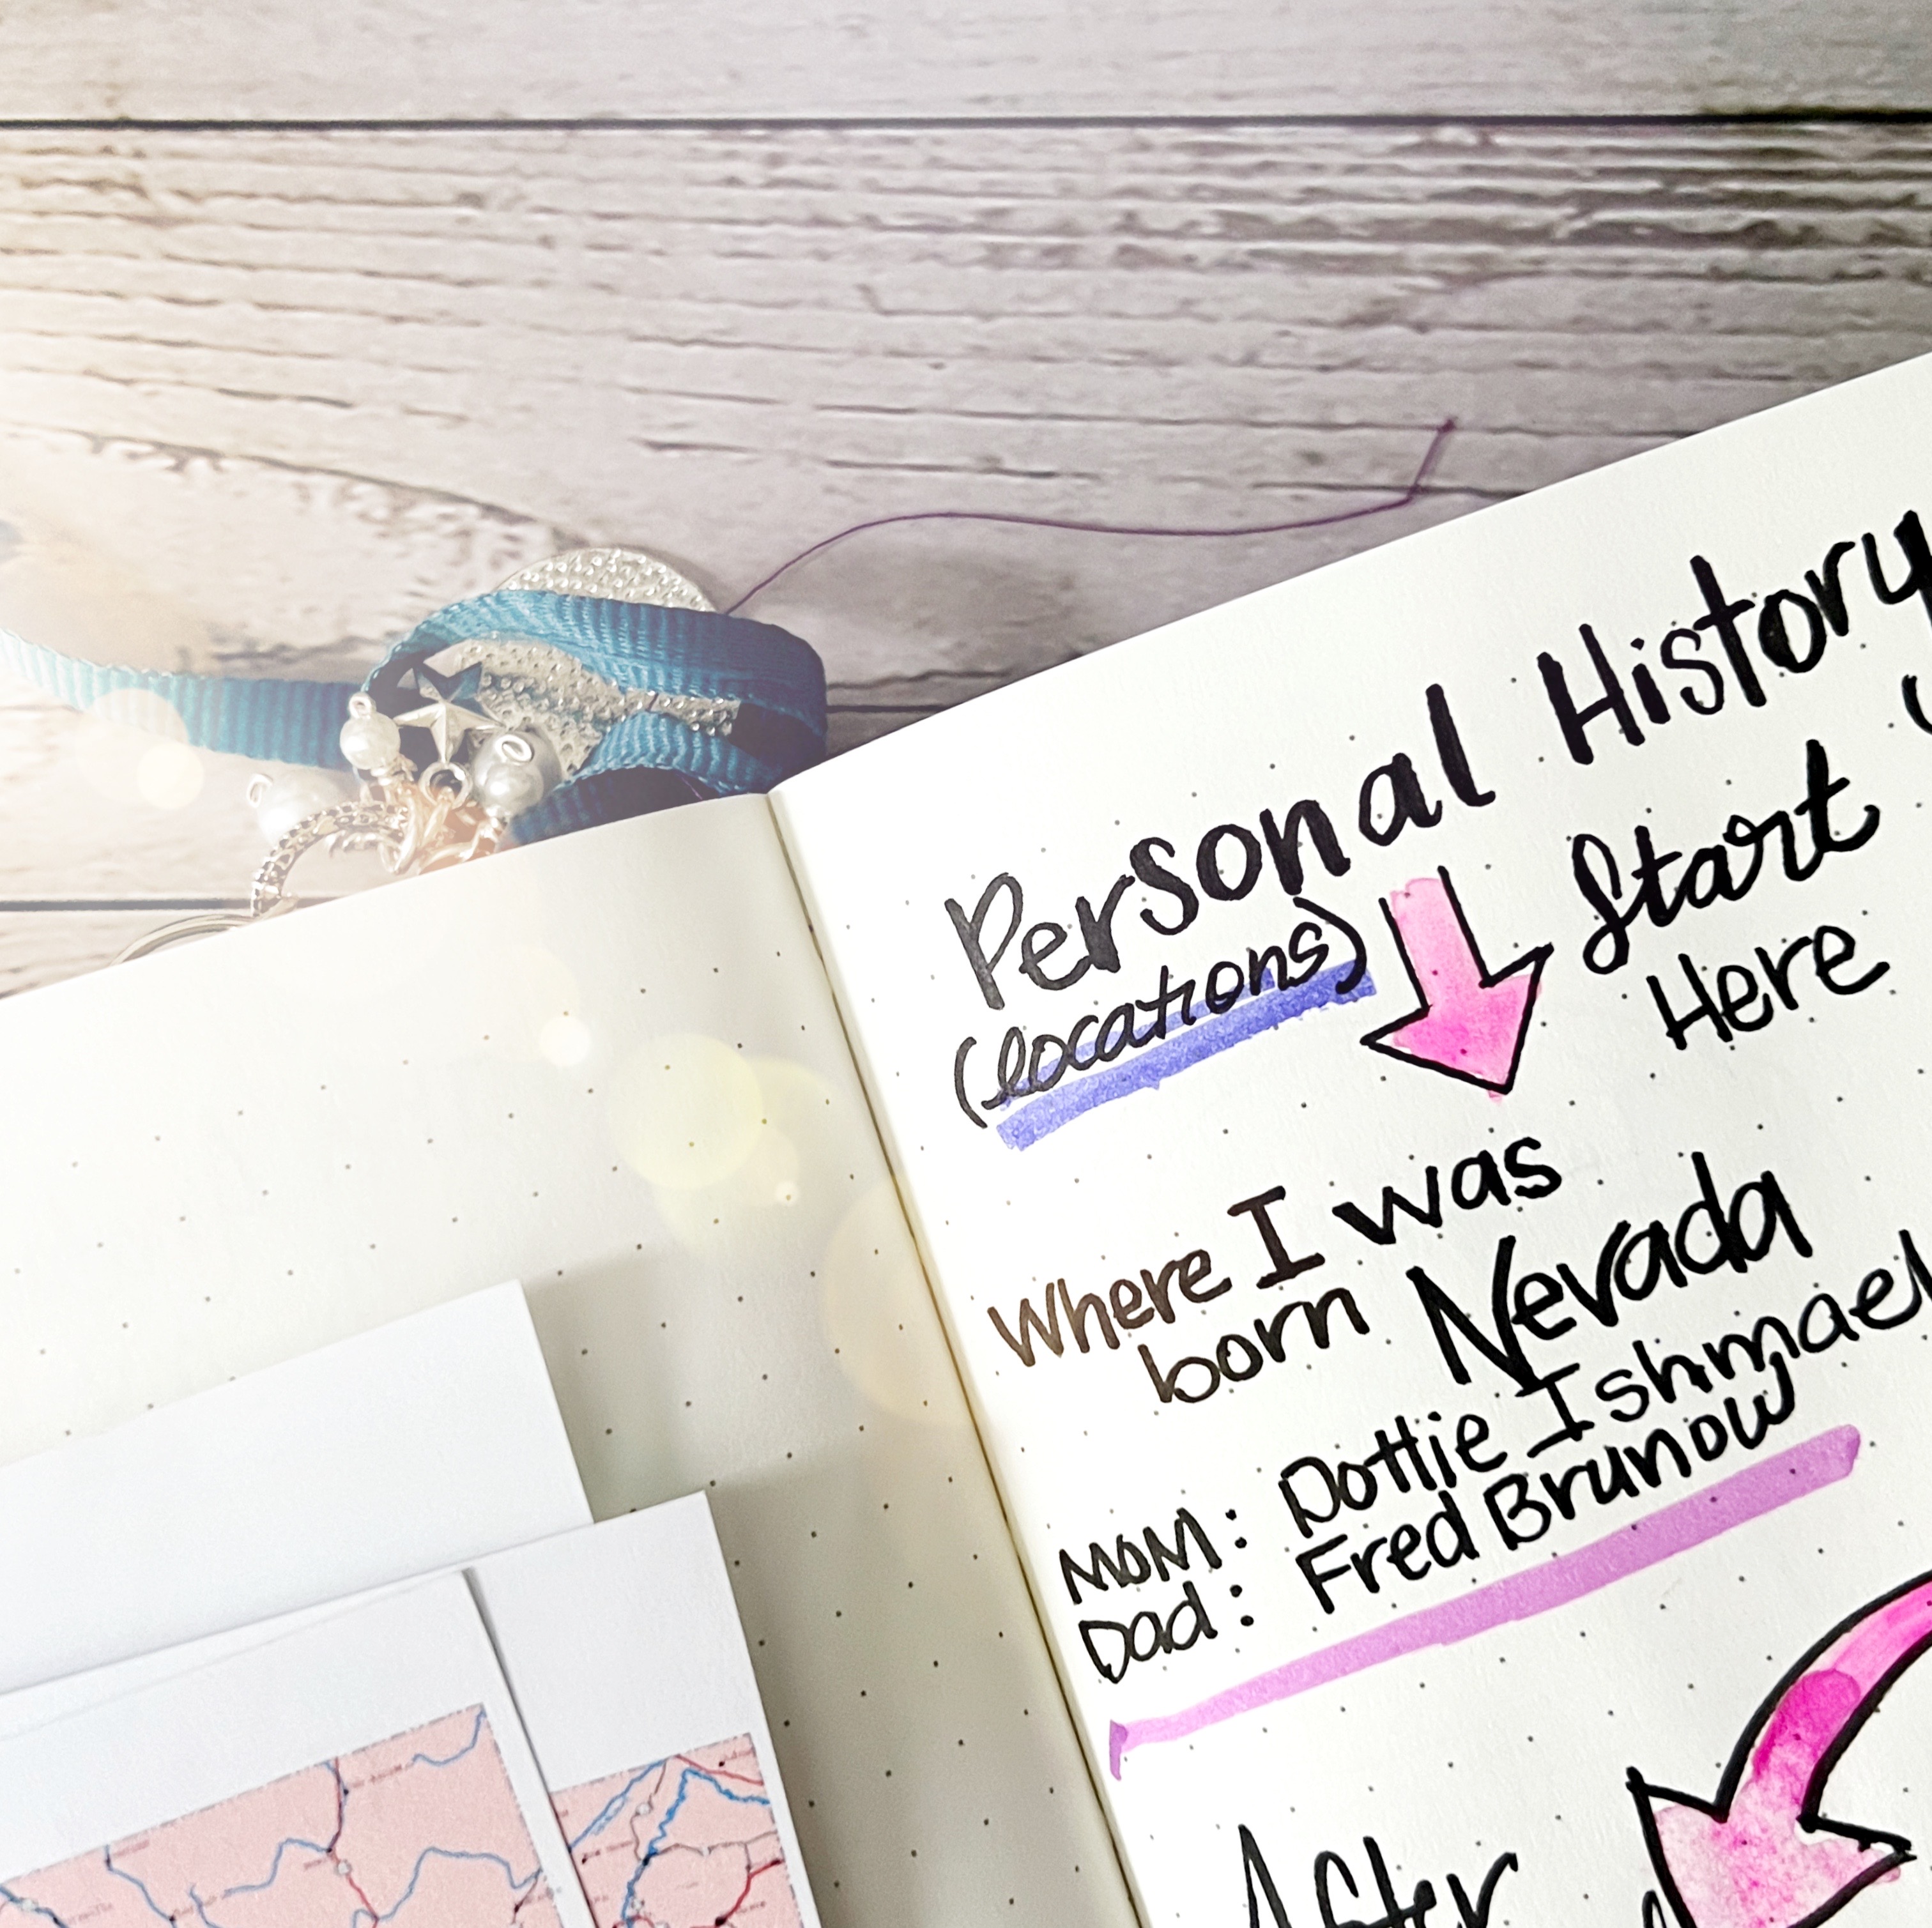 Personal History
(locations)
Start
Here
Where I was
born Nevada
MOM: Dottie Ishmael
Dad: Fred Brunow
After